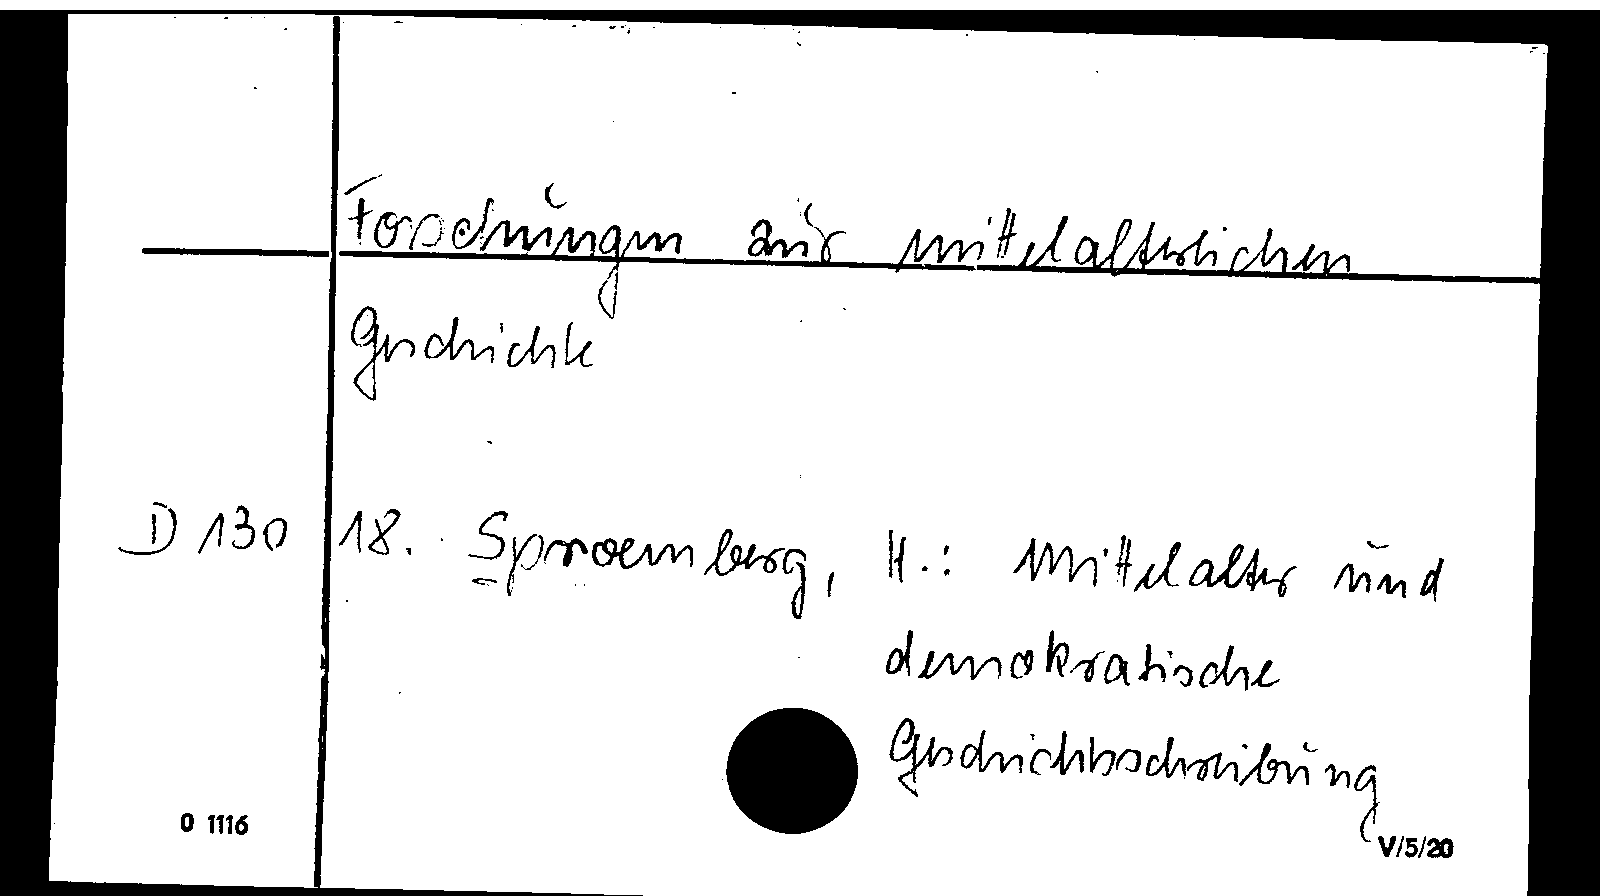 Forschungen zur mittelalterlichen
Geschichte
D 130 18. Sproemberg, H.: Mittelalter und
demokratische
Geschichtsschreibung
O 1116
V/5/20